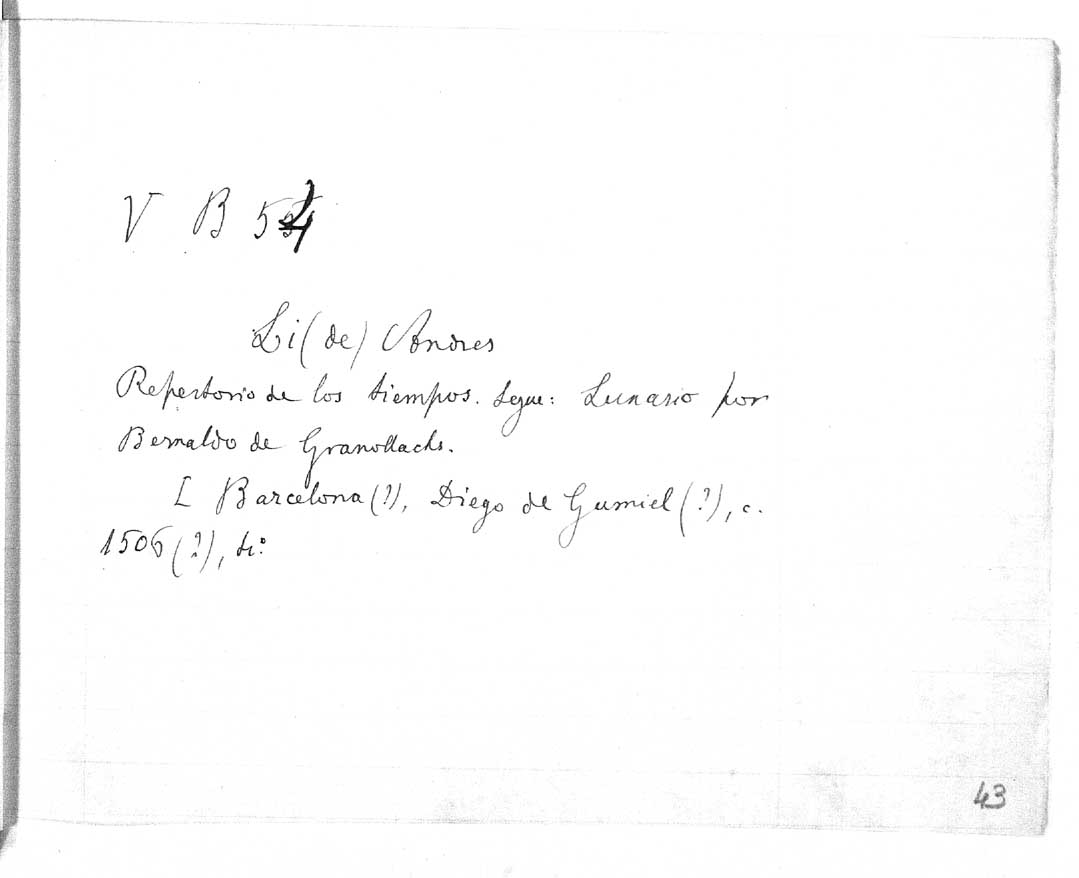 V B 54
Li (de) Andres
Repertorio de los tiempos. Segue: Lunario por
Bernaldo de Granollachs.
[ Barcelona (?), Diego de Gumiel (?), c.
1506 (?), 4º
43